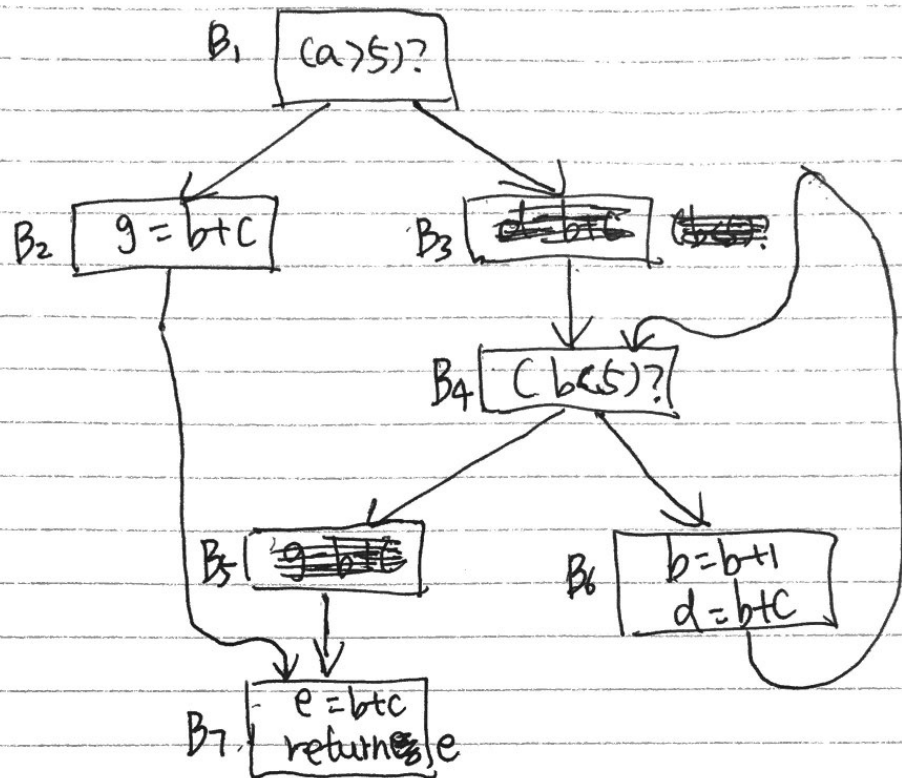 B1 (a>5)?
B2 g=b+c
B3
B4 (b<5)?
B5
B6 b=b+1
d=b+c
B7 e=b+c
return e